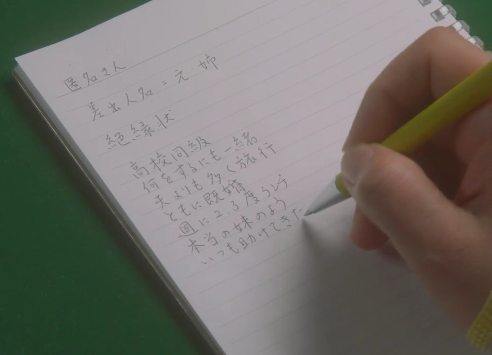 匿名さん
差出人名:元 姉
絶縁状
高校同級
何をするにも一緒
夫よりも多く旅行
ともに既婚
週に2 3度ランチ
本当の妹のよう
いつも助けてきた